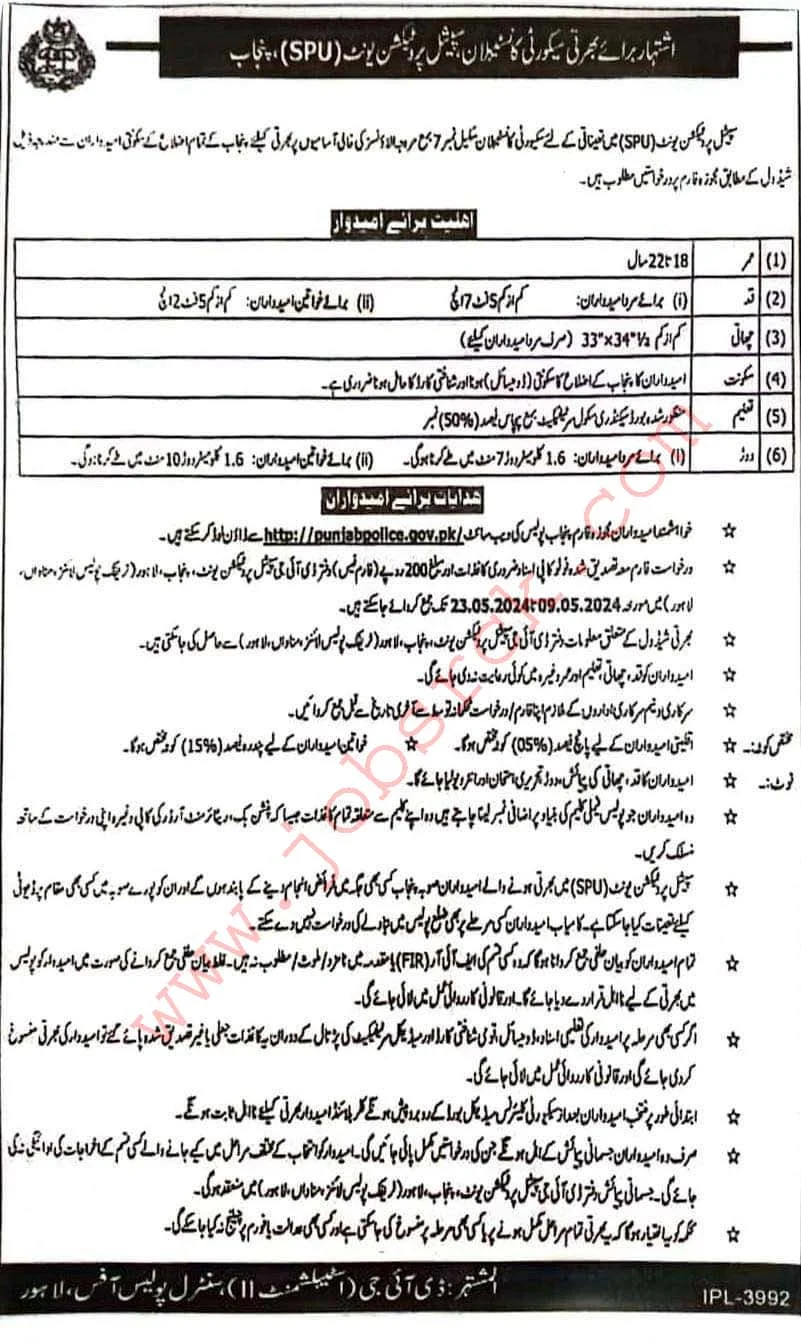 اشتہار برائے بھرتی سیکورٹی کانسٹیبلان، سپیشل پروٹیکشن یونٹ (SPU)، پنجاب
سپیشل پروٹیکشن یونٹ (SPU) میں تعیناتی کے لئے سیکیورٹی کانسٹیبلان سکیل نمبر 7 بمع مروجہ الاؤنسز کی خالی آسامیوں پر بھرتی کیلئے پنجاب کے تمام اضلاع کے سکونتی امیدواران سے مندرجہ ذیل
شیڈول کے مطابق مجوزہ فارم پر درخواستیں مطلوب ہیں۔
اہلیت برائے امیدوار
(1) عمر 18 تا 22 سال
(2) قد (i) برائے مرد امیدواران: کم از کم 5 فٹ 7 انچ (ii) برائے خواتین امیدواران: کم از کم 5 فٹ 2 انچ
(3) چھاتی کم از کم 33"x34"½ (صرف مرد امیدواران کیلئے)
(4) سکونت امیدواران کا پنجاب کے اضلاع کا سکونتی (ڈومیسائل) ہونا اور شناختی کارڈ کا حامل ہونا ضروری ہے۔
(5) تعلیم منظور شدہ بورڈ سیکنڈری سکول سرٹیفکیٹ بمع پچاس فیصد (50%) نمبر
(6) دوڑ (i) برائے مرد امیدواران: 1.6 کلومیٹر دوڑ 7 منٹ میں طے کرنا ہوگی۔ (ii) برائے خواتین امیدواران: 1.6 کلومیٹر دوڑ 10 منٹ میں طے کرنا ہوگی۔
ہدایات برائے امیدواران
☆ خواہشمند امیدواران مجوزہ فارم پنجاب پولیس کی ویب سائٹ http://punjabpolice.gov.pk/ سے ڈاؤن لوڈ کر سکتے ہیں۔
☆ درخواست فارم معہ تصدیق شدہ فوٹو کاپی اسناد ضروری کاغذات اور مبلغ 200 روپے (فارم فیس) دفتر ڈی آئی جی سپیشل پروٹیکشن یونٹ، پنجاب، لاہور (ٹریفک پولیس لائنز، مناواں،
لاہور) میں مورخہ 09.05.2024 تا 23.05.2024 تک جمع کروائے جا سکتے ہیں۔
☆ بھرتی شیڈول کے متعلق معلومات دفتر ڈی آئی جی سپیشل پروٹیکشن یونٹ، پنجاب، لاہور (ٹریفک پولیس لائنز، مناواں، لاہور) سے حاصل کی جا سکتی ہیں۔
☆ امیدواران کو قد، چھاتی، تعلیم اور عمر وغیرہ میں کوئی رعایت نہ دی جائے گی۔
☆ سرکاری و نیم سرکاری اداروں کے ملازم اپنا فارم / درخواست محکمانہ توسط سے آخری تاریخ سے قبل جمع کروائیں۔
مختص کوٹہ:۔ ☆ اقلیتی امیدواران کے لیے پانچ فیصد (05%) کوٹہ مختص ہوگا۔ ☆ خواتین امیدواران کے لیے پندرہ فیصد (15%) کوٹہ مختص ہوگا۔
نوٹ:۔ ☆ امیدواران کا قد، چھاتی کی پیمائش، دوڑ، تحریری امتحان اور انٹرویو لیا جائے گا۔
☆ وہ امیدواران جو پولیس فیملی کلیم کی بنیاد پر اضافی نمبر لینا چاہتے ہیں وہ اپنے کلیم سے متعلقہ تمام کاغذات جیسا کہ پنشن بک، ریٹائرمنٹ آرڈر کی کاپی وغیرہ اپنی درخواست کے ساتھ
منسلک کریں۔
☆ سپیشل پروٹیکشن یونٹ (SPU) میں بھرتی ہونے والے امیدواران صوبہ پنجاب کسی بھی جگہ میں فرائض انجام دینے کے پابند ہوں گے اور ان کو پورے صوبہ میں کسی بھی مقام پر ڈیوٹی
کیلئے تعینات کیا جا سکتا ہے۔ کامیاب امیدواران کسی مرحلے پر بھی ضلع پولیس میں تبادلے کی درخواست نہیں دے سکتے۔
☆ تمام امیدواران کو بیان حلفی جمع کروانا ہوگا کہ وہ کسی قسم کی ایف آئی آر (FIR) یا مقدمہ میں نامزد / ملوث / مطلوب نہ ہیں۔ غلط بیان حلفی جمع کروانے کی صورت میں امیدوار کو پولیس
میں بھرتی کے لیے نااہل قرار دے دیا جائے گا۔ اور قانونی کارروائی عمل میں لائی جائے گی۔
☆ اگر کسی بھی مرحلہ پر امیدوار کی تعلیمی اسناد، ڈومیسائل، قومی شناختی کارڈ اور میڈیکل سرٹیفکیٹ کی پڑتال کے دوران یہ کاغذات جعلی یا غیر تصدیق شدہ پائے گئے تو امیدوار کی بھرتی منسوخ
کر دی جائے گی اور قانونی کارروائی عمل میں لائی جائے گی۔
☆ ابتدائی طور پر منتخب امیدواران بعد از سیکورٹی کلیئرنس میڈیکل بورڈ کے روبرو پیش ہونگے کلر بلائنڈ امیدوار بھرتی کیلئے نااہل ثابت ہونگے۔
☆ صرف وہ امیدواران جسمانی پیمائش کے اہل ہونگے جن کی درخواستیں مکمل پائی جائیں گی۔ امیدوار کو انتخاب کے مختلف مراحل میں کیے جانے والے کسی قسم کے اخراجات کی ادائیگی نہ کی
جائے گی۔ جسمانی پیمائش دفتر ڈی آئی جی سپیشل پروٹیکشن یونٹ، پنجاب، لاہور (ٹریفک پولیس لائنز، مناواں، لاہور) میں منعقد ہوگی۔
☆ محکمہ کو یہ اختیار ہوگا کہ یہ بھرتی تمام مراحل مکمل ہونے پر یا کسی بھی مرحلہ پر منسوخ کی جا سکتی ہے اور کسی بھی عدالت یا فورم پر چیلنج نہ کیا جا سکے گا۔
المشتہر: ڈی آئی جی (اسٹیبلشمنٹ II)، سنٹرل پولیس آفس، لاہور
IPL-3992
www.jobsrck.com